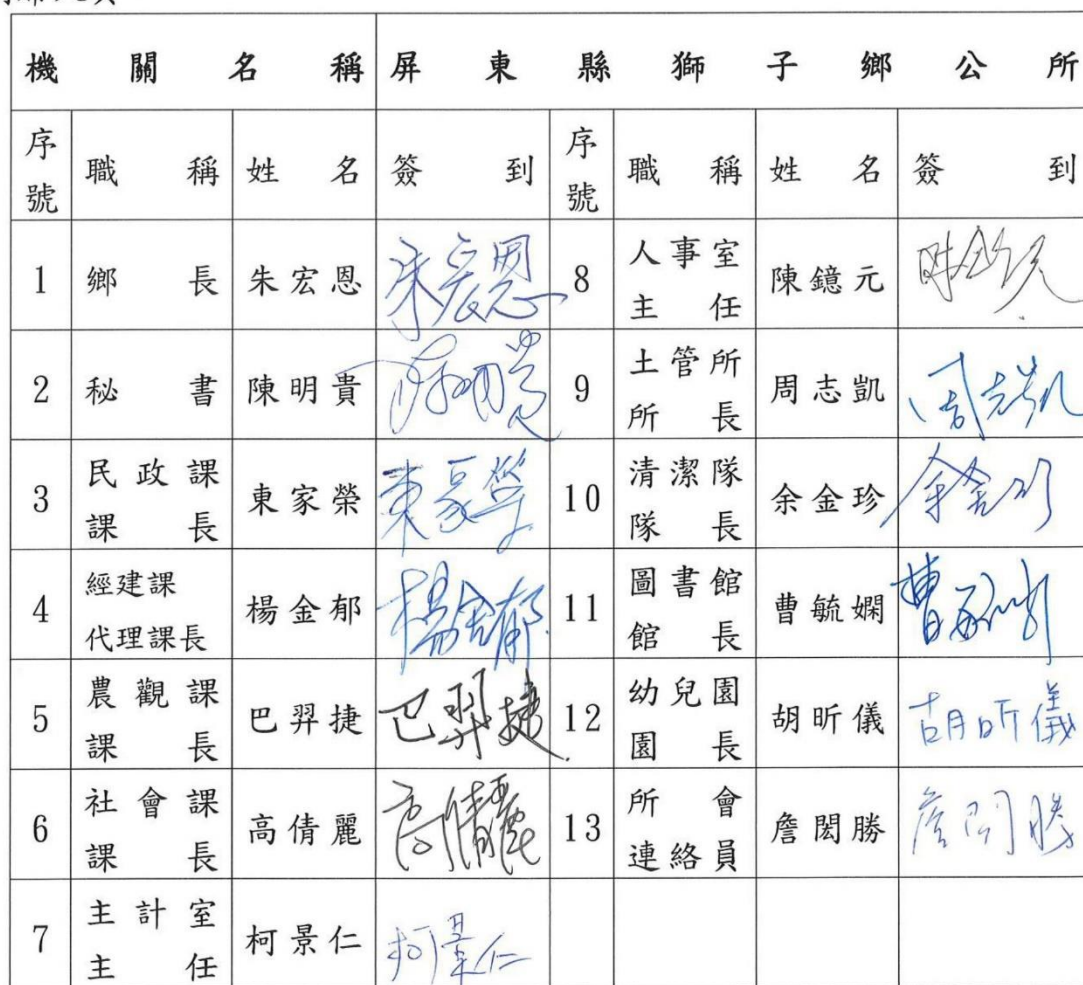 機關名稱 屏東縣獅子鄉公所
序號 職稱 姓名 簽到 序號 職稱 姓名 簽到
1 鄉長 朱宏恩 朱宏恩 8 人事室主任 陳鐿元
2 秘書 陳明貴 陳明貴 9 土管所所長 周志凱 周志凱
3 民政課課長 東家榮 東家榮 10 清潔隊隊長 余金珍
4 經建課代理課長 楊金郁 楊金郁 11 圖書館館長 曹毓嫻
5 農觀課課長 巴羿捷 巴羿捷 12 幼兒園園長 胡昕儀 胡昕儀
6 社會課課長 高倩麗 高倩麗 13 所會連絡員 詹閎勝 詹閎勝
7 主計室主任 柯景仁 柯景仁